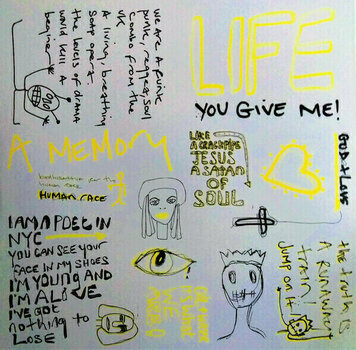 WE ARE A FUNK
PUNK, REGGAE, SOUL
COMBO FROM THE
UK
A living, breathing
SOAP OPERA.
the levels of drama
would kill a
beginner
LIFE
YOU GIVE ME!
A MEMORY
human race
HUMAN RACE
LIKE
A CRACKPIPE
JESUS
A SATAN
OF
SOUL
GOD + LOVE
I AM A POET IN
NYC
YOU CAN SEE YOUR
FACE IN MY SHOES
I'M YOUNG AND
I'M ALIVE
I'VE GOT
nothing to
LOSE
the truth is
A RUNAWAY
train!
JUMP ON IT